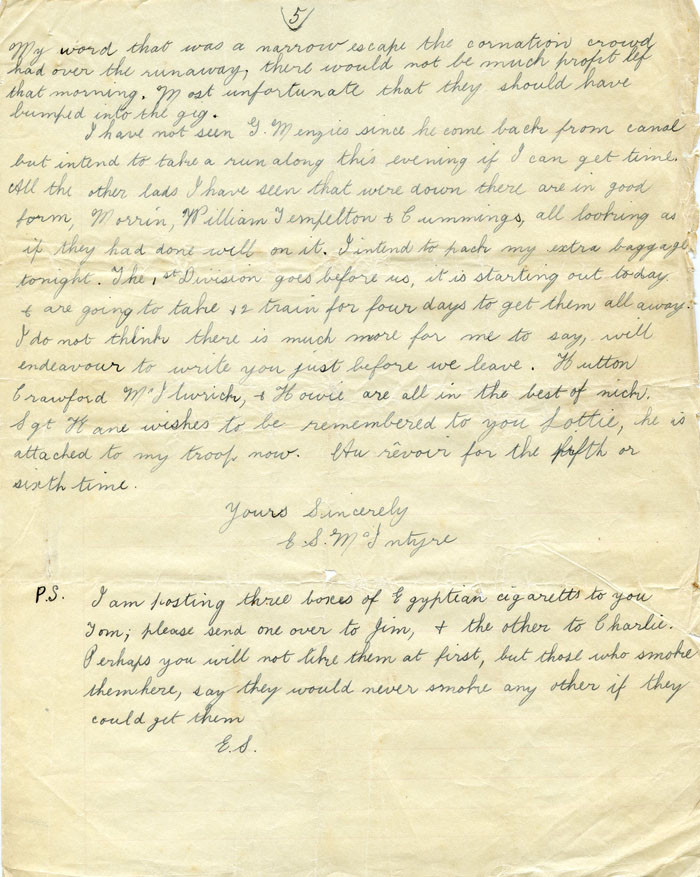 5
My word that was a narrow escape the cornation crowd
had over the runaway, there would not be much profit lef
that morning. Most unfortunate that they should have
bumped into the gig.
I have not seen G. Menzies since he come back from canal
but intend to take a run along this evening if I can get time.
All the other lads I have seen that wire down there are in good
form, Morrin, William Tempelton & Cummings, all looking as
if they had done well on it. I intend to pack my extra baggage
tonight. The 1st Division goes before us, it is starting out today
& are going to take 42 train for four days to get them all away.
I do not think there is much more for me to say, will
endeavour to write you just before we leave. Hutton
Crawford McIlwrick, & Howie are all in the best of nick.
Sgt Kane wishes to be remembered to you Lottie, he is
attached to my troop now. Au rêvoir for the fifth or
sixth time.
Yours Sincerely
E.S. McIntyre
P.S. I am posting three boxes of Egyptian cigaretts to you
Tom; please send one over to Jim, & the other to Charlie.
Perhaps you will not like them at first, but those who smoke
them here, say they would never smoke any other if they
could get them
E.S.